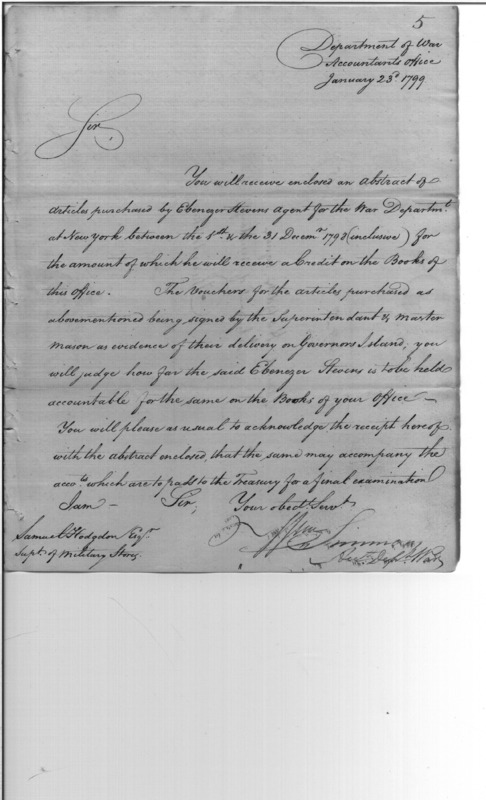 5
Department of War
Accountants office
January 23d 1799
Sir,
You will receive enclosed an abstract of
articles purchased by Ebenezer Stevens Agent for the War Departmt
at New York between the & the 31 Decemr 1798 (inclusive) for
the amount of which he will receive a Credit on the Books of
this office. The Vouchers for the articles purchased as
abovementioned being signed by the Superintendant & Master
Mason as evidence of their delivery on Governors Island; you
will judge how far the said Ebenezer Stevens is to be held
accountable for the same on the Books of your Office —
You will please as usual to acknowledge the receipt hereof
with the abstract enclosed, that the same may accompany the
accots which are to pass to the Treasury for a final examination
I am — Sir, Your obedt Servt
Wm Simmons
Samuel Hodgdon Esqr.
Supt. of Military Stores
Acct Dept War